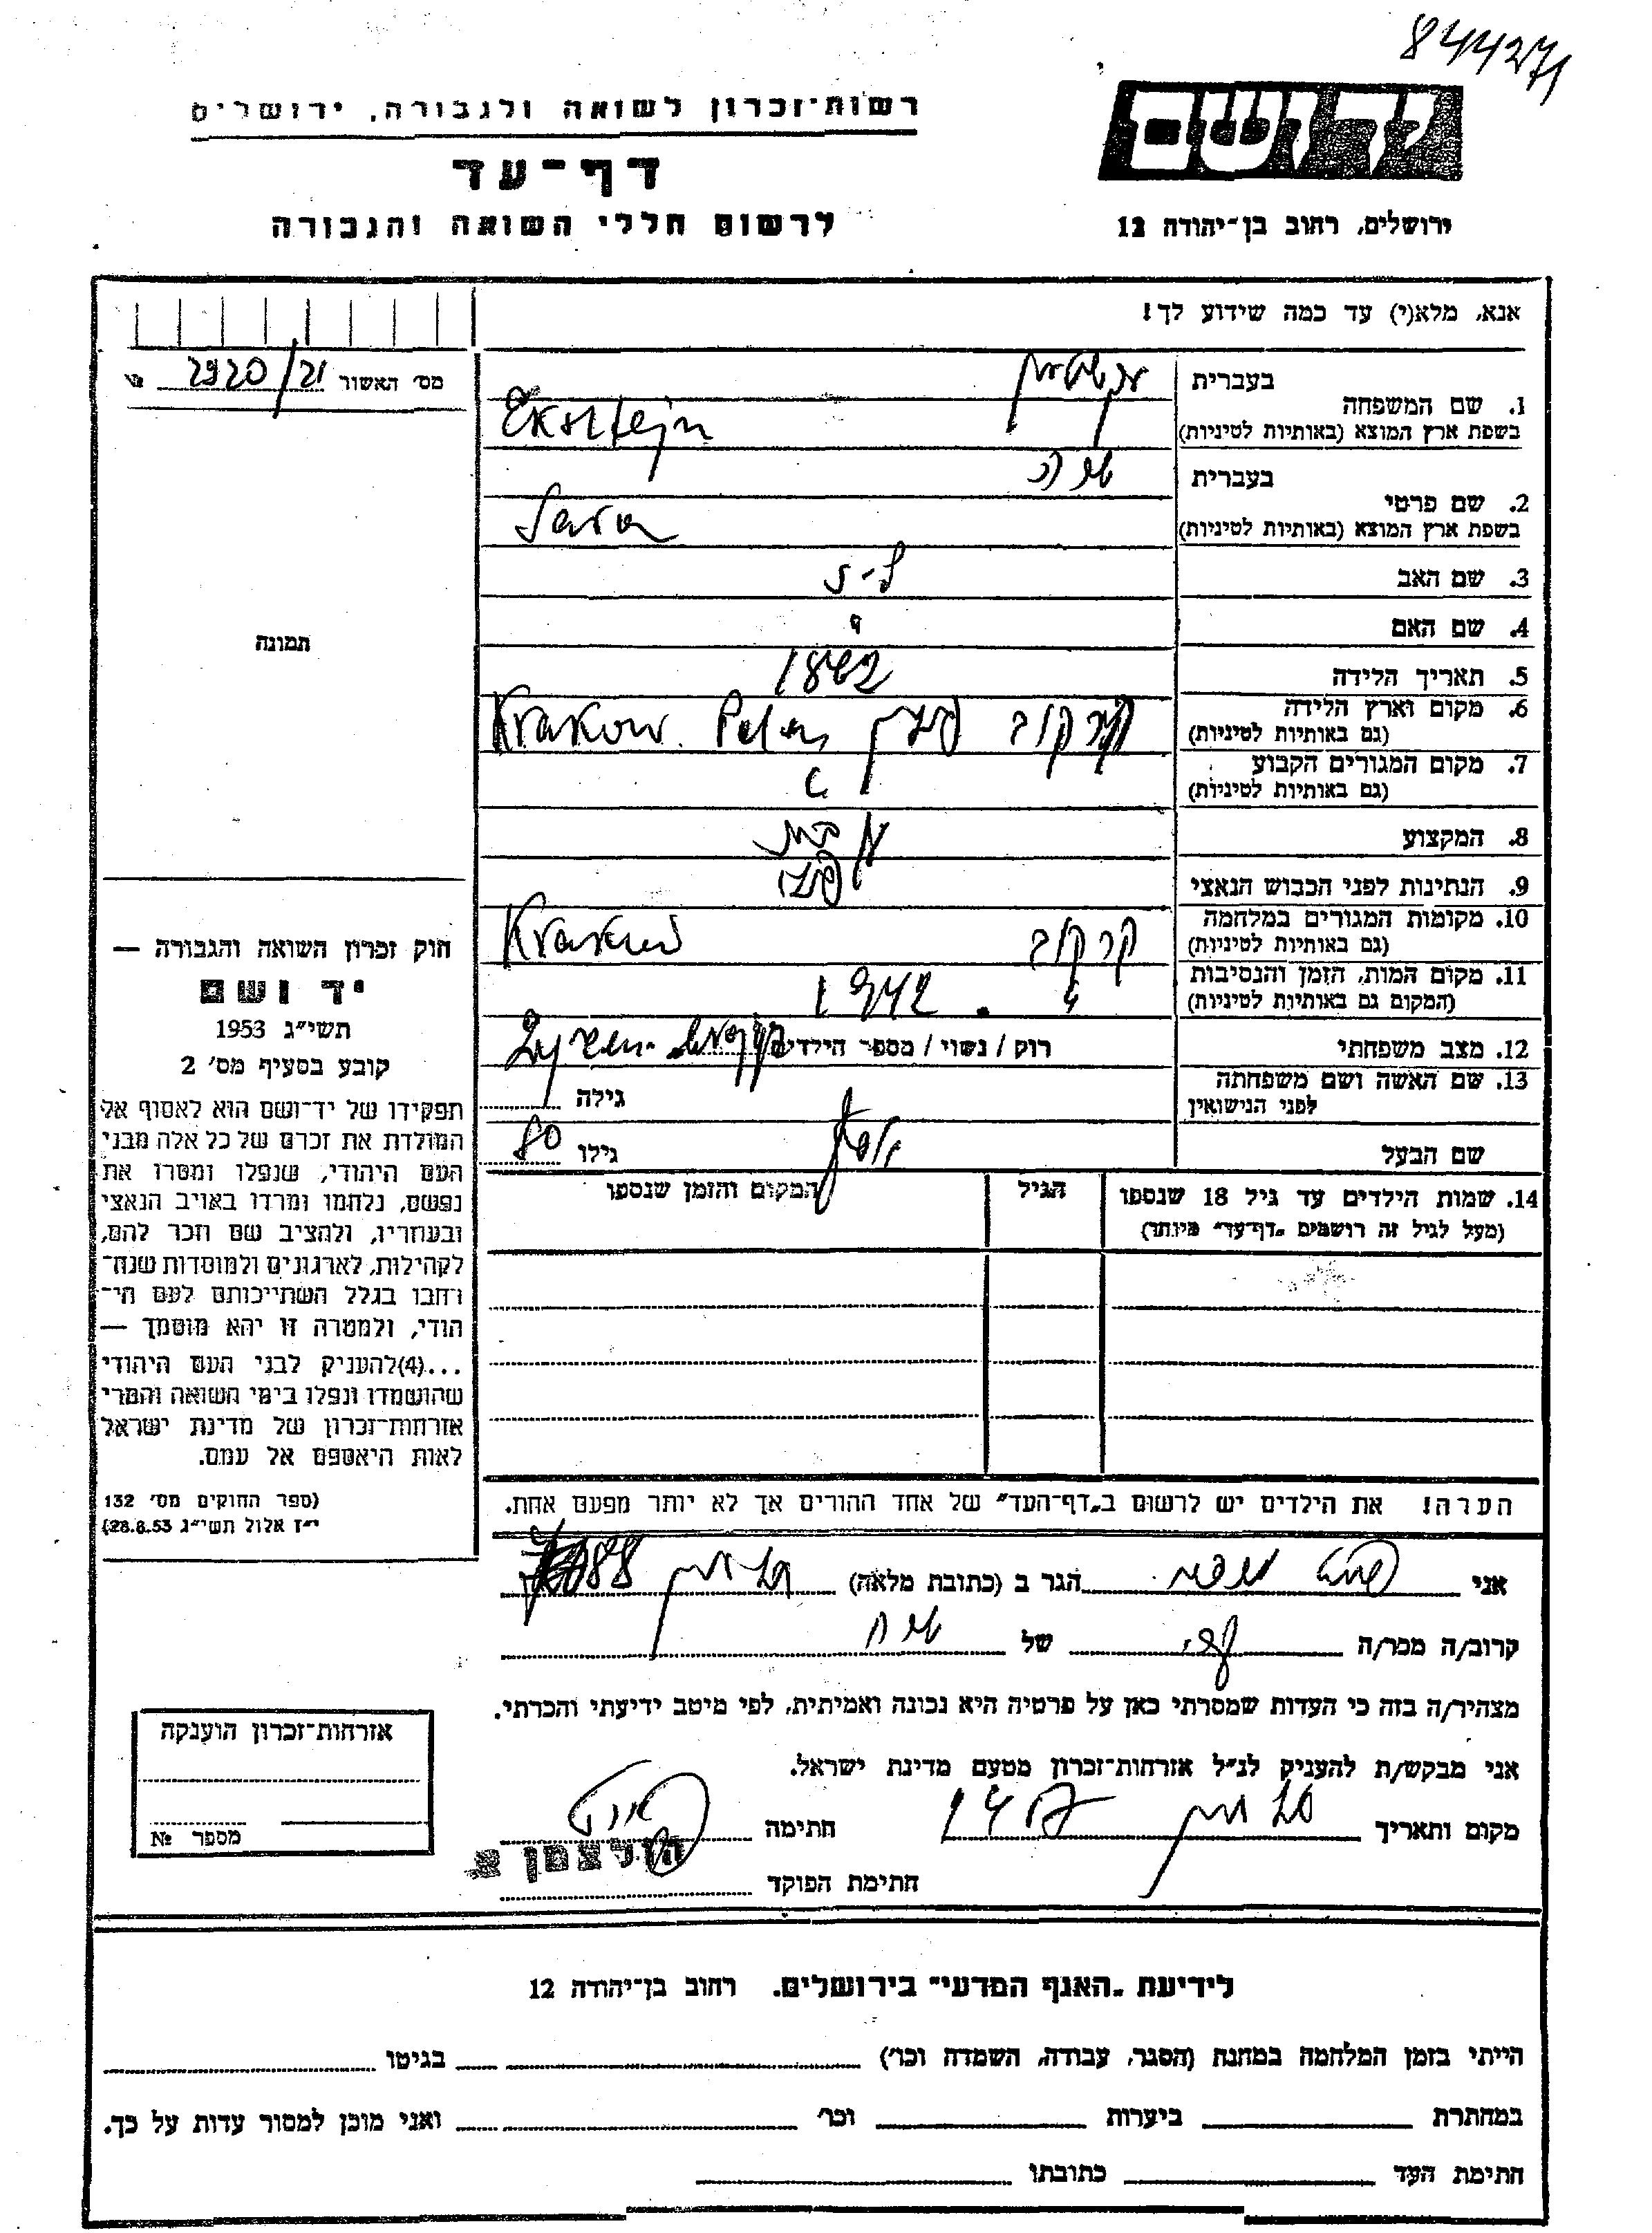 844271
רשות־זכרון לשואה ולגבורה, ירושלים
יד ושם
דף־עד
ירושלים, רחוב בן־יהודה 12
לרשום חללי השואה והגבורה
אנא, מלא(י) עד כמה שידוע לך!
מס׳ האשור 2920/21 №
1. שם המשפחה
בעברית
בשפת ארץ המוצא (באותיות לטיניות) Ekstejn
2. שם פרטי
בעברית שרה
בשפת ארץ המוצא (באותיות לטיניות) Sara
3. שם האב
4. שם האם
5. תאריך הלידה 1862
6. מקום וארץ הלידה
(גם באותיות לטיניות) קרקוב פולין Krakow
7. מקום המגורים הקבוע
(גם באותיות לטיניות)
8. המקצוע
9. הנתינות לפני הכבוש הנאצי
10. מקומות המגורים במלחמה
(גם באותיות לטיניות) קרקוב Krakow
11. מקום המות, הזמן והנסיבות
(המקום גם באותיות לטיניות) 1942
12. מצב משפחתי רוק / נשוי / מספר הילדים
13. שם האשה ושם משפחתה
לפני הנישואין גילה
שם הבעל יוסף גילו 80
14. שמות הילדים עד גיל 18 שנספו
(מעל לגיל זה רושמים „דף־עד״ מיוחד)
הגיל
המקום והזמן שנספו
הערה! את הילדים יש לרשום ב„דף־העד״ של אחד ההורים אך לא יותר מפעם אחת.
תמונה
חוק זכרון השואה והגבורה —
יד ושם
תשי״ג 1953
קובע בסעיף מס׳ 2
תפקידו של יד־ושם הוא לאסוף אל
המולדת את זכרם של כל אלה מבני
העם היהודי, שנפלו ומסרו את
נפשם, נלחמו ומרדו באויב הנאצי
ובעוזריו, ולהציב שם וזכר להם,
לקהילות, לארגונים ולמוסדות שנח־
רבו בגלל השתייכותם לעם הי־
הודי, ולמטרה זו יהא מוסמך —
...(4)להעניק לבני העם היהודי
שהושמדו ונפלו בימי השואה והמרי
אזרחות־זכרון של מדינת ישראל
לאות היאספם אל עמם.
(ספר החוקים מס׳ 132
י״ז אלול תשי״ג 28.8.53)
אני הגר ב (כתובת מלאה)
קרוב/ה מכר/ה של שרה
מצהיר/ה בזה כי העדות שמסרתי כאן על פרטיה היא נכונה ואמיתית, לפי מיטב ידיעתי והכרתי.
אני מבקש/ת להעניק לנ״ל אזרחות־זכרון מטעם מדינת ישראל.
מקום ותאריך חתימה
חתימת הפוקד הולצמן א.
אזרחות־זכרון הוענקה
מספר №
לידיעת „האגף המדעי״ בירושלים. רחוב בן־יהודה 12
הייתי בזמן המלחמה במחנה (הסגר, עבודה, השמדה וכו׳) בגיטו
במחתרת ביערות וכו׳ ואני מוכן למסור עדות על כך.
חתימת העד כתובתו